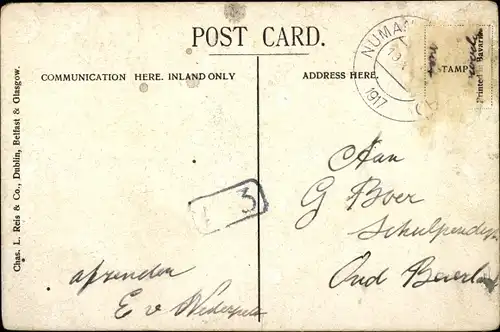 POST CARD.
COMMUNICATION HERE. INLAND ONLY
ADDRESS HERE.
STAMP
Printed in Bavaria
NUMAN
1917
Chas. L. Reis & Co., Dublin, Belfast & Glasgow.
3
Aan
G Boer
Oud Beierland
afzender
E v